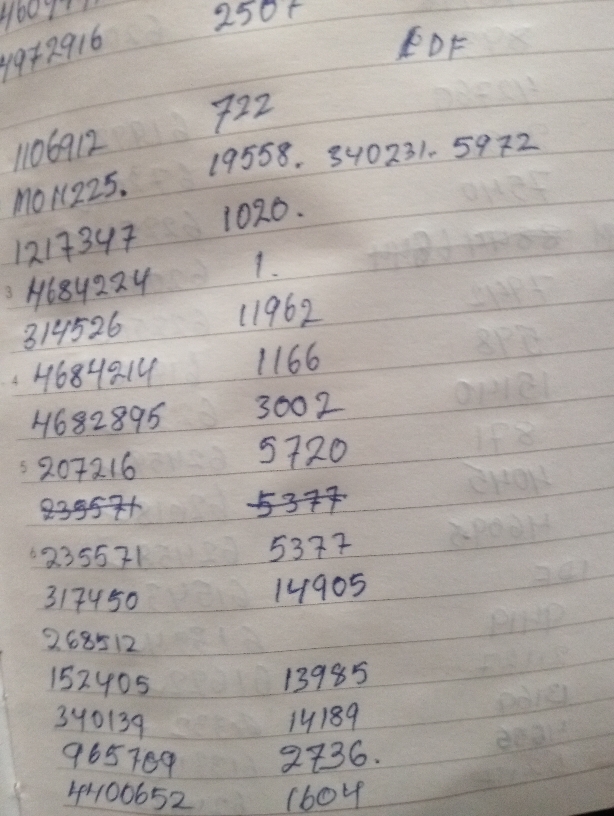 4972916 2507
PDF
1106912 722
M011225. 19558. 340231. 5972
1217347 1020.
3 4684224 1.
314526 11962
4 4684214 1166
4682895 3002
5 207216 5720
235571 5377
6 235571 5377
317450 14905
268512
152405 13985
340139 14189
965769 2736.
4400652 1604